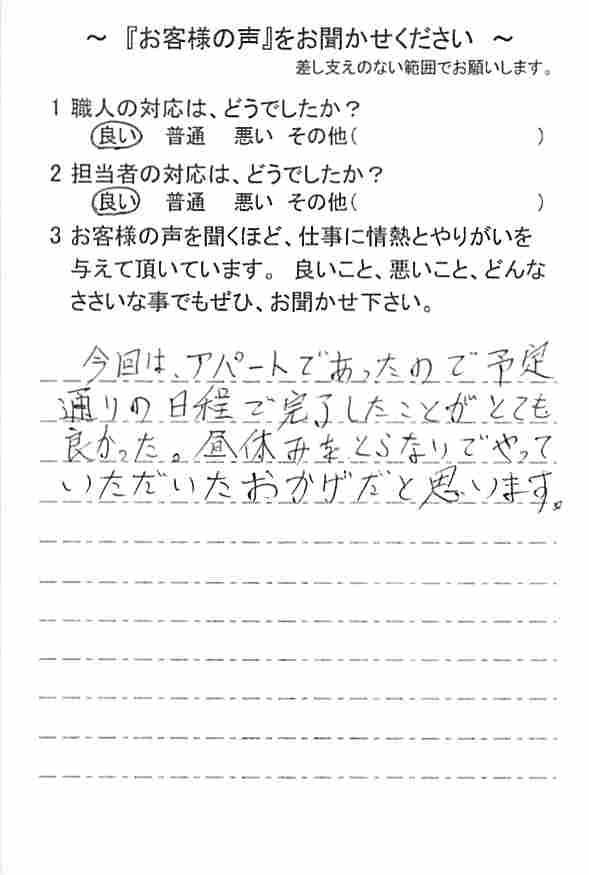 ～ 『お客様の声』をお聞かせください ～
差し支えのない範囲でお願いします。
1 職人の対応は、どうでしたか？
良い 普通 悪い その他( )
2 担当者の対応は、どうでしたか？
良い 普通 悪い その他( )
3 お客様の声を聞くほど、仕事に情熱とやりがいを
与えて頂いています。 良いこと、悪いこと、どんな
ささいな事でもぜひ、お聞かせ下さい。
今回は、アパートであったので予定
通りの日程で完了したことがとても
良かった。昼休みをとらないでやって
いただいたおかげだと思います。